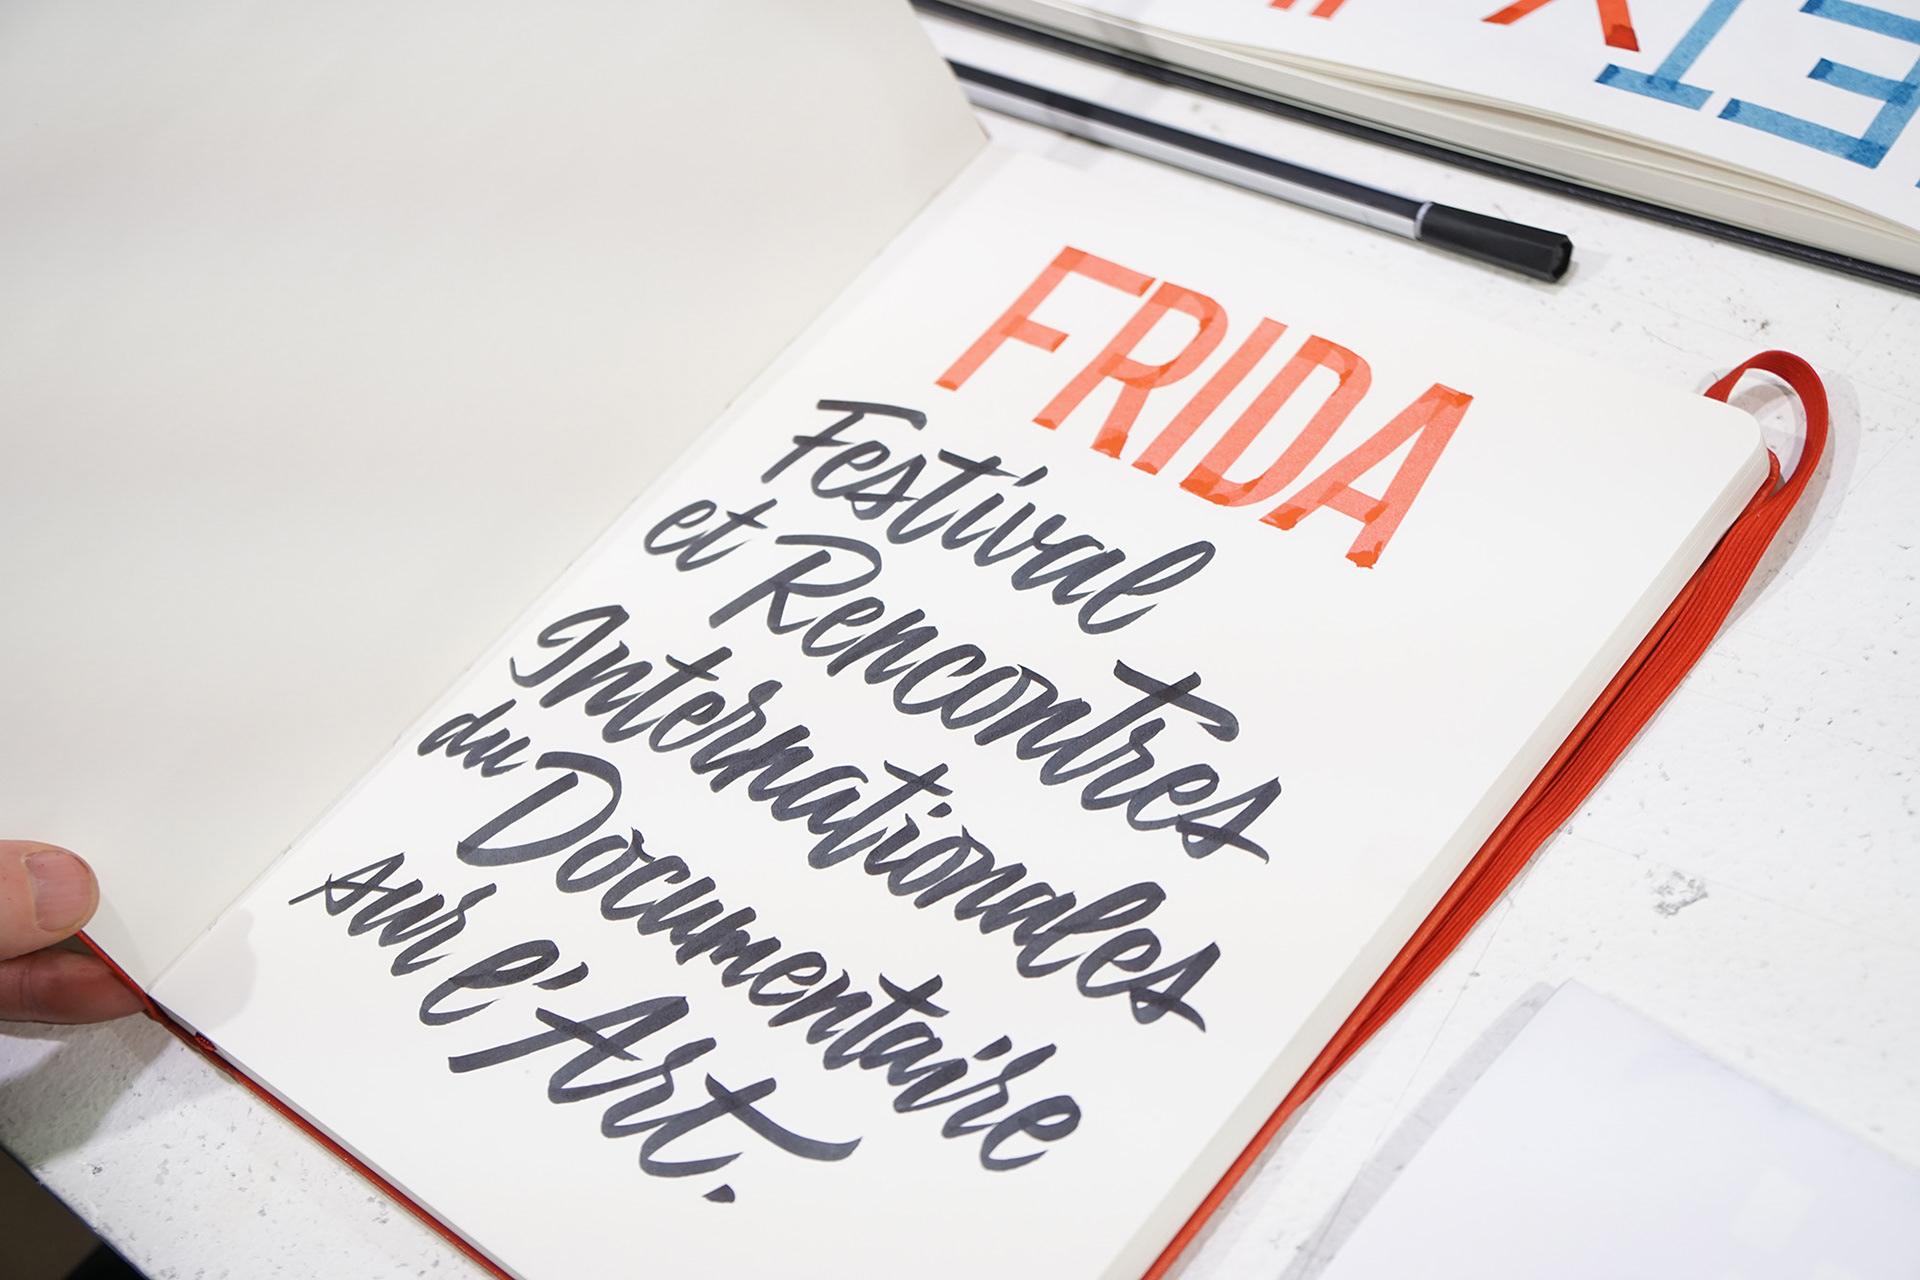 FRIDA
Festival
et Rencontres
Internationales
du Documentaire
sur l'Art.